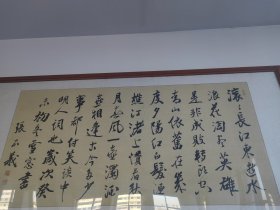 滚〻長江東逝水
浪花淘尽英雄
是非成敗轉頭空
青山依舊在幾
度夕陽紅白髮漁
樵江渚上慣看秋
月春風一壺濁酒
喜相逢古今多少
事都付笑談中
明人詞也歲次癸
未初冬雪窗書
張